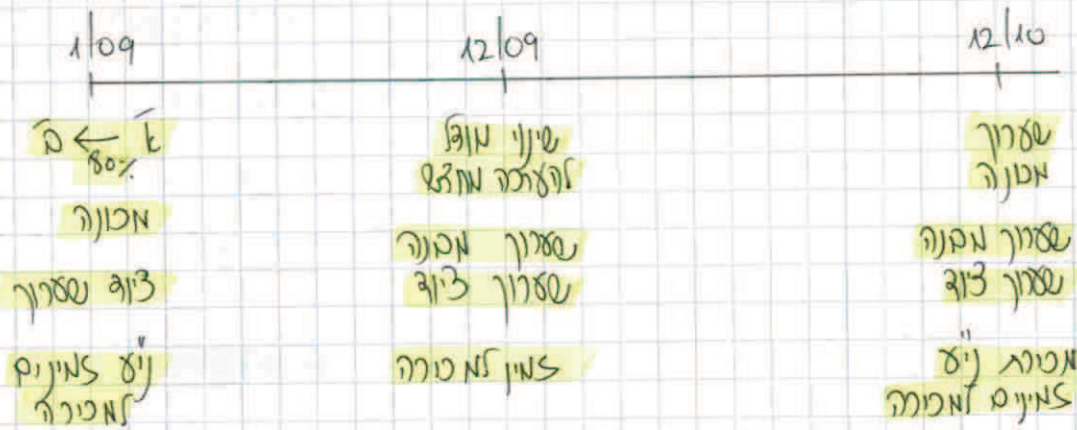 1/09
12/09
12/10
א' → ב'
80%
מכונה
ציוד שערוך
ני"ע זמינים
למכירה
שינוי מודל
להערכה מחדש
שערוך מבנה
שערוך ציוד
זמין למכירה
שערוך
מכונה
שערוך מבנה
שערוך ציוד
מכירת ני"ע
זמינים למכירה